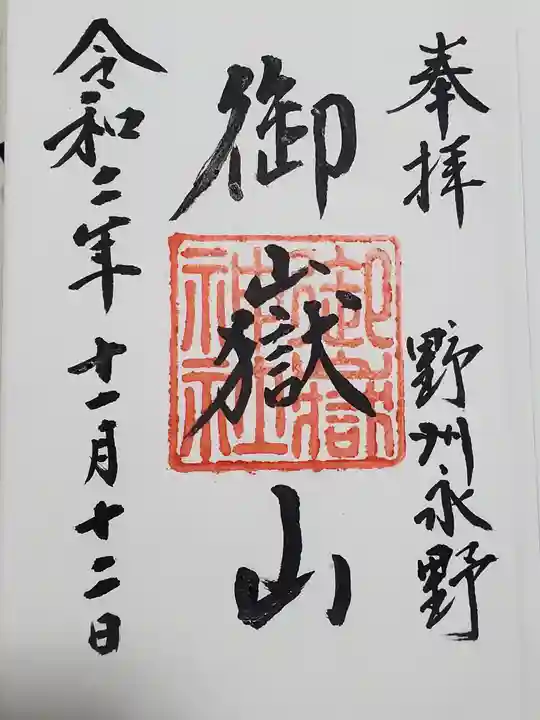 奉拝
野州永野
御嶽山
御嶽
神社
令和二年十一月十二日